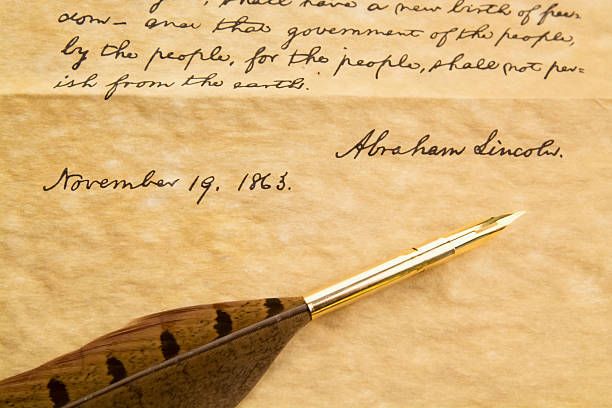 , shall have a new birth of free
dom — and that government of the people,
by the people, for the people, shall not per=
ish from the earth.
Abraham Lincoln.
November 19. 1863.